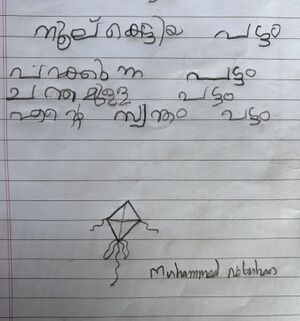 നൂല് കെട്ടിയ പട്ടം
പറക്കുന്ന പട്ടം
ചന്തമുള്ള പട്ടം
എന്റെ സ്വന്തം പട്ടം
Muhammed